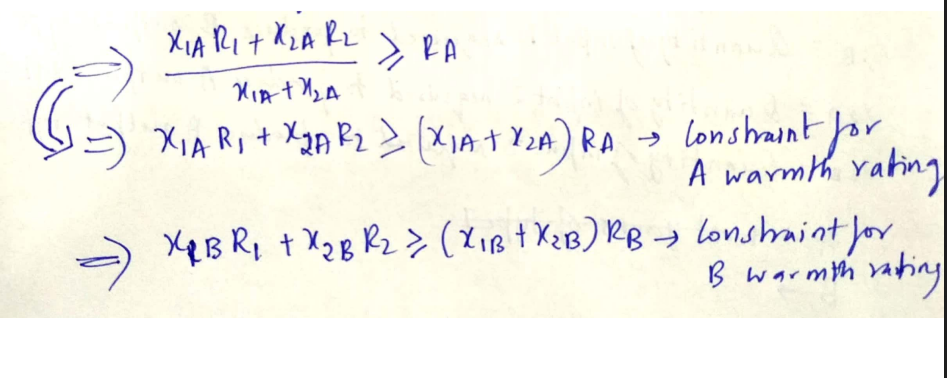 ⇒ X1A R1 + X2A R2 / X1A + X2A ≥ RA
⇒ X1A R1 + X2A R2 ≥ (X1A + X2A) RA → Constraint for
A warmth rating
⇒ X1B R1 + X2B R2 ≥ (X1B + X2B) RB → Constraint for
B warmth rating